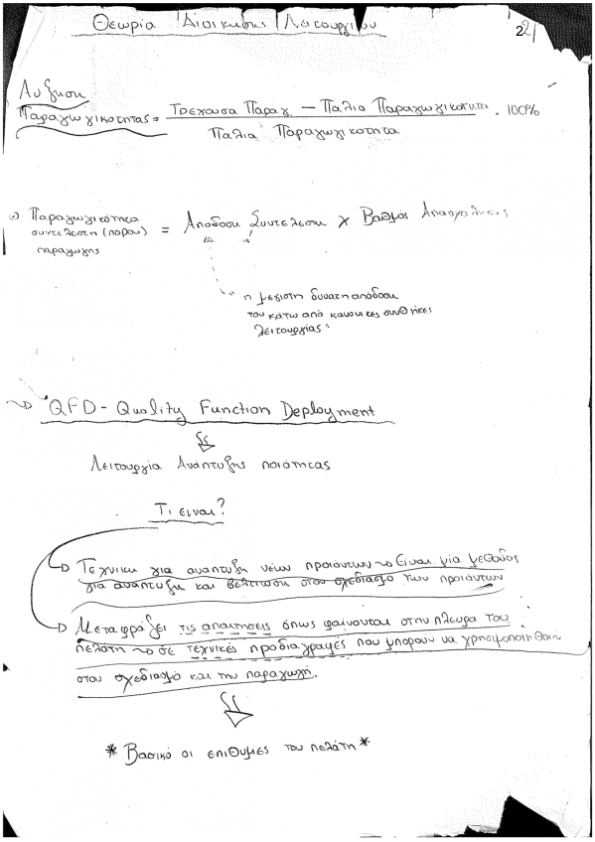 Θεωρία Διοίκησης Λειτουργιών
22
Αύξηση
Παραγωγικότητας = Τρέχουσα Παραγ. – Παλια Παραγωγικότητα . 100%
Παλια Παραγωγικότητα
Παραγωγικότητα
συντελεστή (πόρου) = Απόδοση Συντελεστη x Βαθμός Απασχόλησης
παραγωγης
"η μεγιστη δυνατη απόδοση
του κάτω από κανονικες συνθήκες
λειτουργίας"
QFD - Quality Function Deployment
Λειτουργία Ανάπτυξης ποιότητας
Τι ειναι?
Τεχνικη για αναπτυξη νέων προιοντων Είναι μία μεθοδος
για αναπτυξη και βελτιωση στον σχεδιασμο των προιοντων
Μεταφράζει τις απαιτησεις όπως φαινονται στην πλευρα του
πελάτη σε τεχνικές προδιαγραφές που μπορουν να χρησιμοποιηθουν
στον σχεδιασμό και την παραγωγή.
* Βασικό οι επιθυμιες του πελάτη *